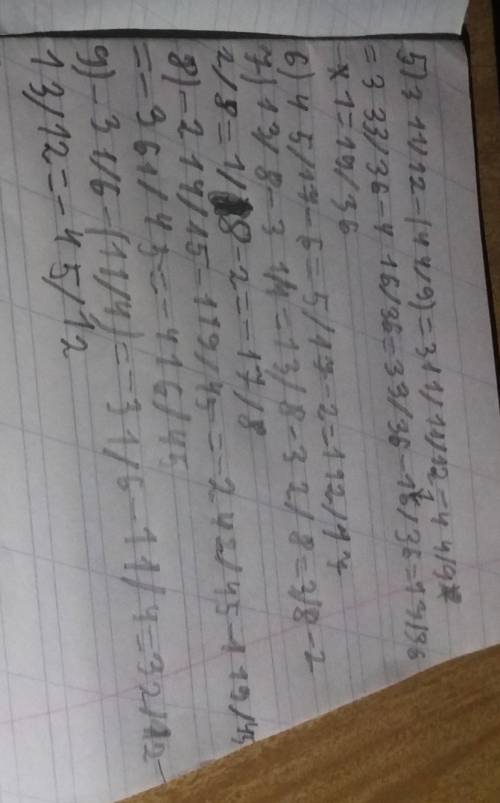 5) 3 11/12 - (4 4/9) = 3 11/12 - 4 4/9 =
= 3 33/36 - 4 16/36 = 33/36 - 16/36 = 17/36
- 1 = 19/36
6) 4 5/17 - 6 = 5/17 - 2 = 1 12/17
7) 1 3/8 - 3 1/4 = 1 3/8 - 3 2/8 = 3/8 - 2
2/8 = 1/8 - 2 = - 17/8
8) - 2 14/15 - 1 19/45 = - 2 42/45 - 1 19/45
= - 3 61/45 = - 4 16/45
9) - 3 1/6 - (1 1/4) = - 3 1/6 - 1 1/4 = 3 2/12 -
1 3/12 = - 4 5/12